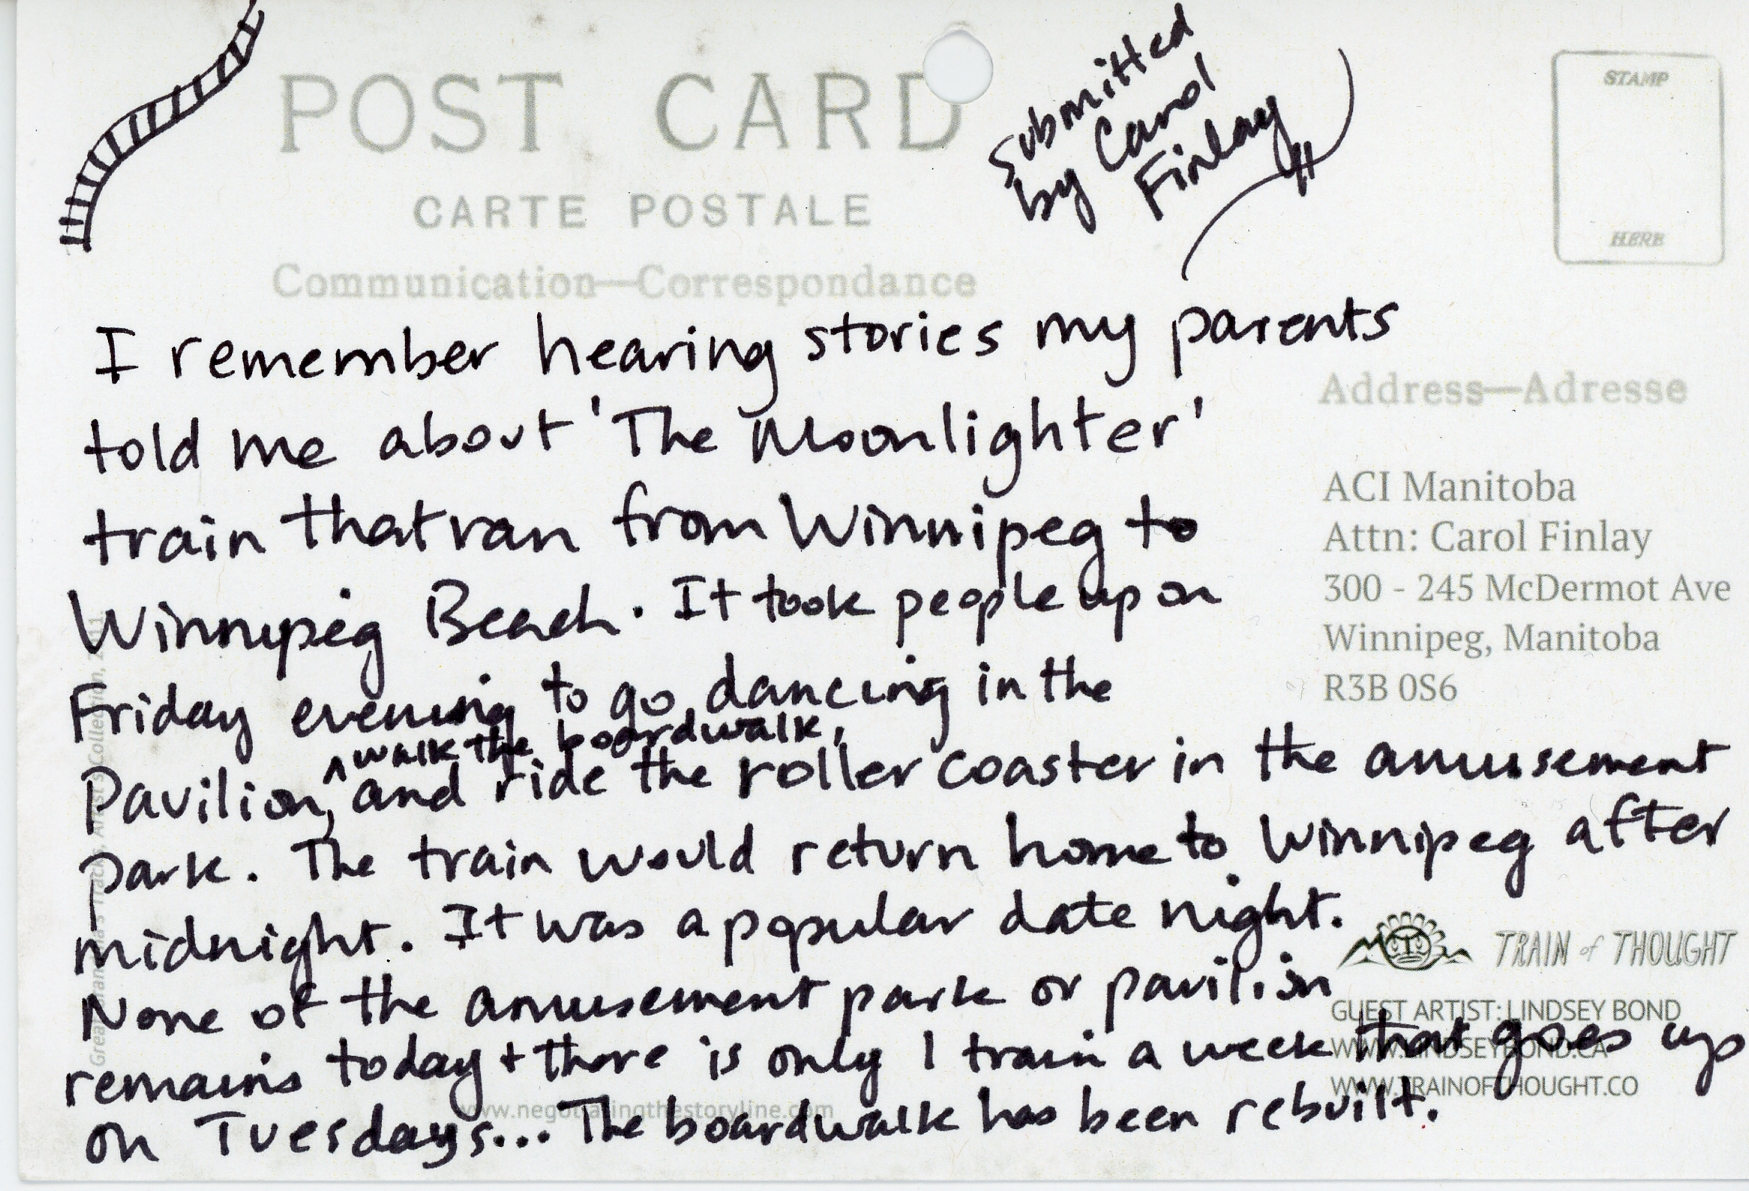 POST CARD
CARTE POSTALE
Communication—Correspondance
submitted
by Carol
Finlay
STAMP
HERE
I remember hearing stories my parents
told me about 'The Moonlighter'
train that ran from Winnipeg to
Winnipeg Beach. It took people up on
Friday evening to go dancing in the
walk the boardwalk,
Pavilion, and ride the roller coaster in the amusement
park. The train would return home to Winnipeg after
midnight. It was a popular date night.
None of the amusement park or pavilion
remains today + there is only 1 train a week that goes up
on Tuesdays... The boardwalk has been rebuilt.
Address—Adresse
ACI Manitoba
Attn: Carol Finlay
300 - 245 McDermot Ave
Winnipeg, Manitoba
R3B 0S6
TRAIN of THOUGHT
GUEST ARTIST: LINDSEY BOND
WWW.LINDSEYBOND.CA
WWW.TRAINOFTHOUGHT.CO
www.negotiatingthestoryline.com